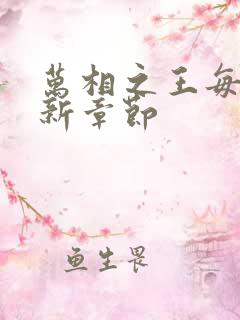 萬相之王每
新章節
鱼生畏